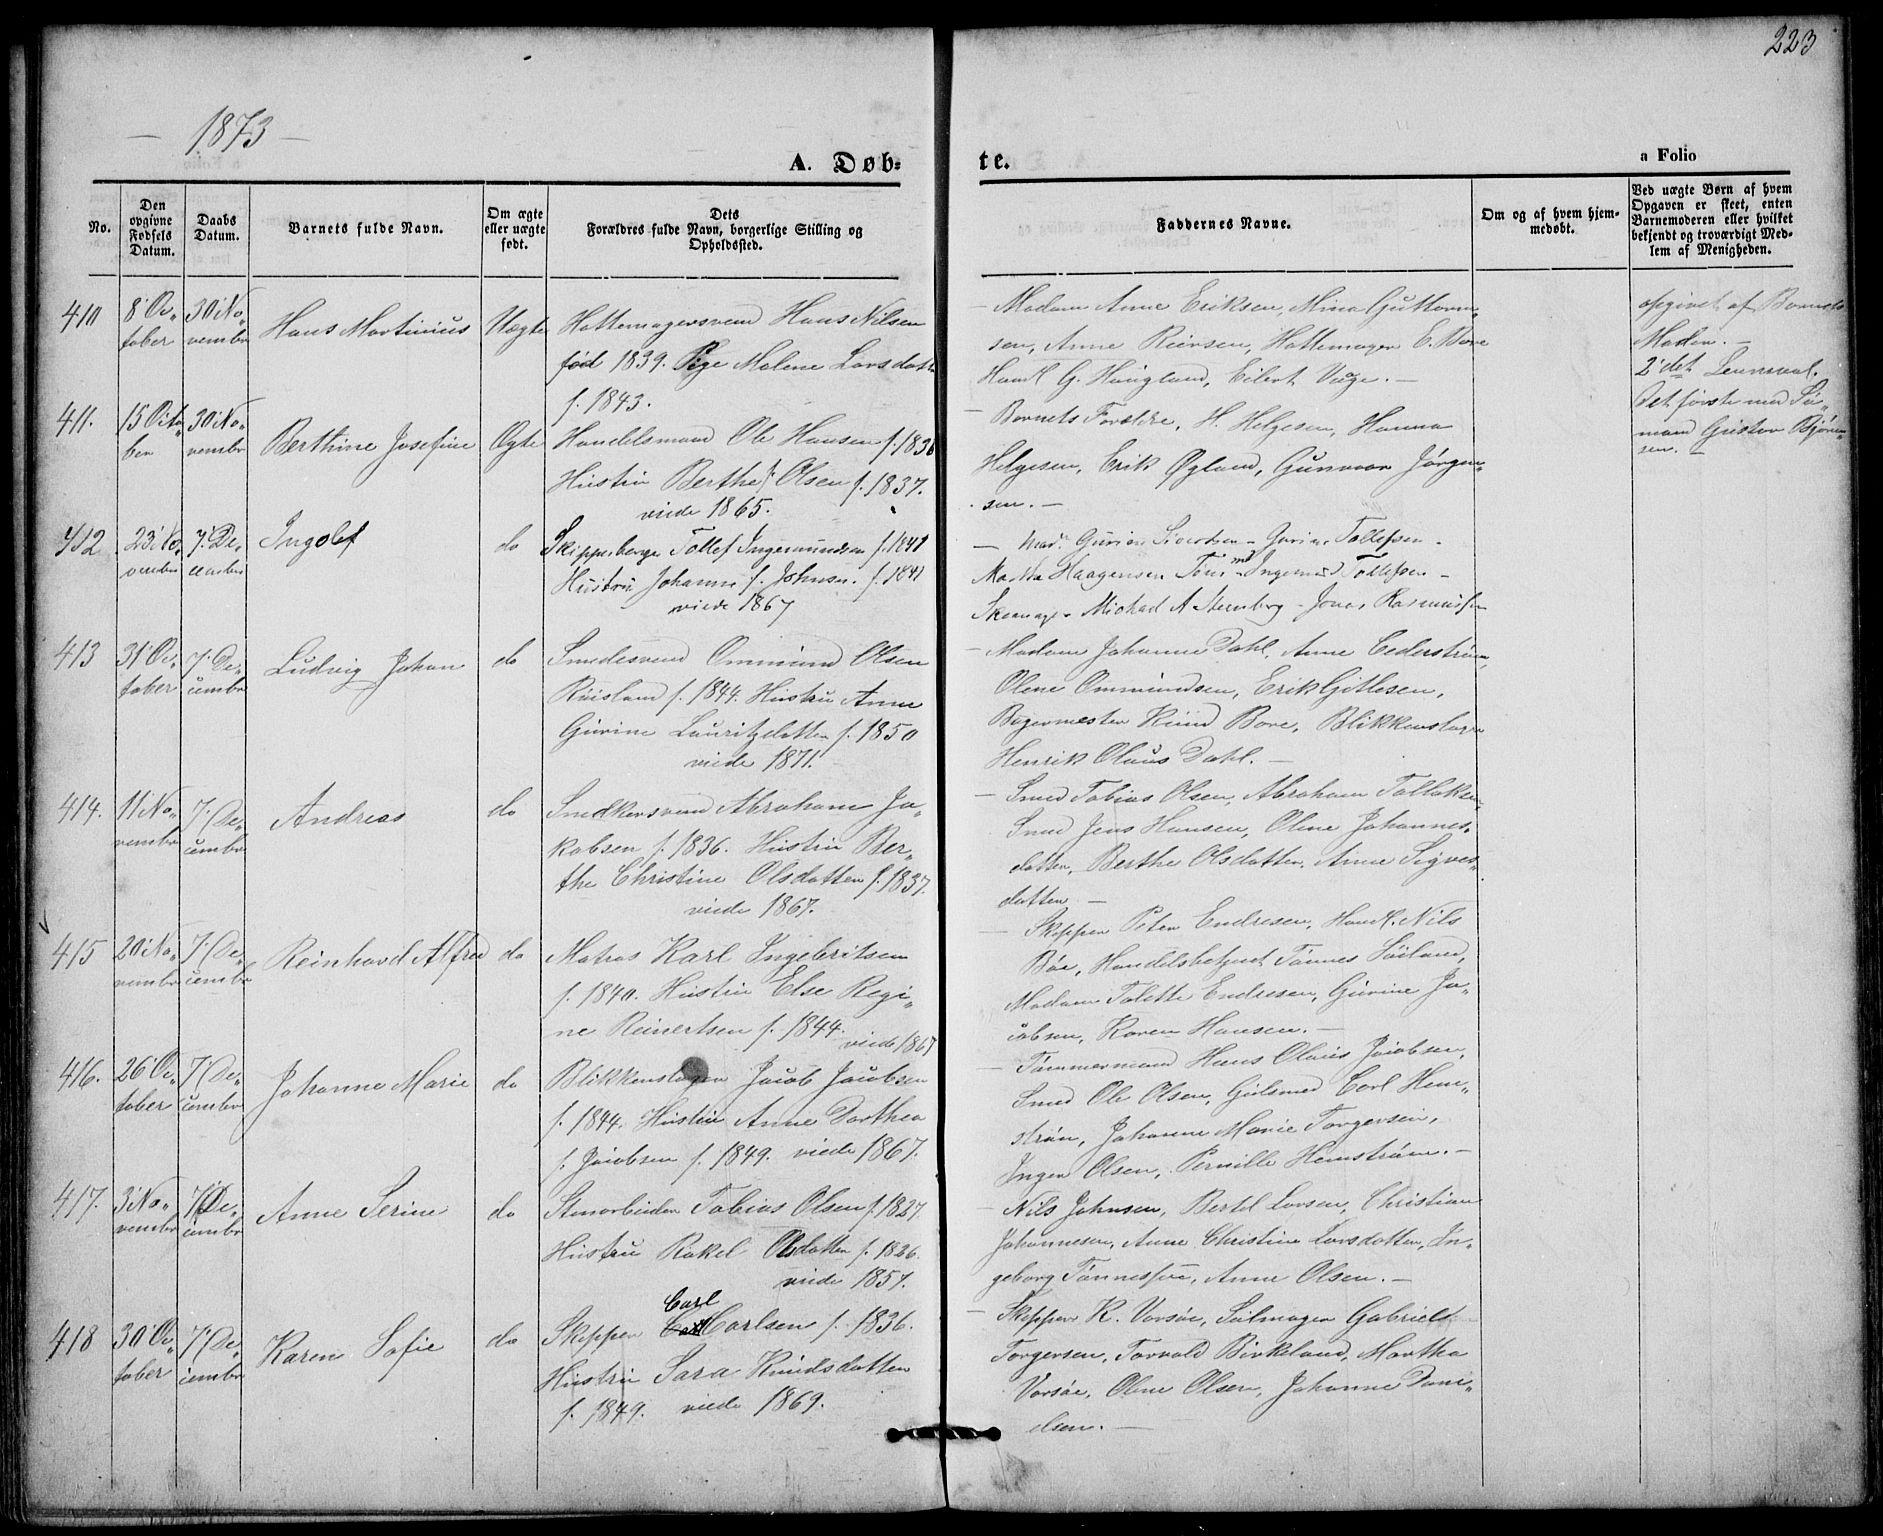 223
— 1873 —
A. Døb=
te.
a Folio
No.
Den opgivne Fødsels Datum.
Daabs Datum.
Barnets fulde Navn.
Om ægte eller uægte født.
Dets Forældres fulde Navn, borgerlige Stilling og Opholdssted.
Faddernes Navne.
Om og af hvem hjemmedøbt.
Ved uægte Børn af hvem Opgaven er skeet, enten Barnemoderen eller hvilket bekjendt og troværdigt Medlem af Menigheden.
410 8' Oc„ 30' No„ Hans Martinius Uægte Hattemagersvend Hans Nilsen
tober vembr
fød 1839. Pige Malene Larsdatt
f. 1843.
— Madam Anne Eriksen, Mina Guttorm„
sen, Anne Reiersen, Hattemager E. Bore
Handl G. Haugland, Eilert Vuge. —
opgivet af Barnets
Moder. —
2' det Leiermaal.
Det første med Sø„
mand Grister Bjørn„
sen. —
411. 15 Octo„ 30' No„ Berthine Josefine Ægte Handelsmand Ole Hansen f. 1836
ber vembr
Hustru Berthe f. Olsen f. 1837.
viede 1865.
— Barnets Forældre, H. Helgesen, Hanna
Helgesen, Erik Øgland, Gunvor Jörgen„
sen. —
412 23' No„ 7' De„ Ingolf do Skipper borger Tollef Ingemundsen f. 1841
vember cember
Hustru Johanne f. Johnsn. f. 1841
viede 1867
— Mad. Gurine Sivertsen - Gurine Tollefsen -
Martha Haagensen Tönnes Ingemd Tollefsen -
Skomager Michael A Sternberg - Jonas Rasmussen
413 31' Oc„ 7' De„ Ludvig Johan do Smedesvend Ommund Olsen
tober cembr
Riisland f. 1844. Hustru Anne
Gurine Lauritzdatter f. 1850
viede 1871.
— Madam Johanne Dahl, Anne Cederstrøm,
Olene Ommundsen, Erik Gitlesen,
Bagermester Knud Bore, Blikkenslager
Henrik Olaus Dahl. —
414. 11' No„ 7' De„ Andreas do Snedkersvend Abraham Ja„
vembr cembr
kobsen f. 1836. Hustru Ber„
the Christine Olsdatter f. 1837.
viede 1867.
— Smed Tobias Olsen, Abraham Tollaksen
Smed Jens Hansen, Oline Johannes„
datter, Berthe Olsdatter, Anne Sigves„
datter. —
415 20' No„ 7' De„ Reinhard Alfred do Matros Karl Ingebritsen
vembr cembr
f. 1840. Hustru Else Regi„
ne Reinertsen f. 1844. viede 1867
— Skipper Peter Endresen, Handl. Nils
Bøe, Handelsbetjent Tønnes Söiland,
Madam Talette Endresen, Gurine Ja„
cobsen, Karen Hansen. —
416. 26' Oc„ 7' De„ Johanne Marie do Blikkenslager Jacob Jacobsen
tober cembr
f. 1844. Hustru Anne Dorthea
f. Jacobsen f. 1849. viede 1867.
— Tømmermand Hans Olaus Jacobsen,
Smed Ole Olsen, Gulsmed Carl Hem„
strøm, Johanne Marie Torgersen,
Inger Olsen, Pernille Hemstrøm. —
417. 3' No„ 7' De„ Anne Serine do Stenarbeider Tobias Olsen f. 1827.
vembr cembr
Hustru Rakel Olsdatter f. 1826.
viede 1857.
— Nils Johnsen, Bertel Larsen, Christian
Johannesen, Anne Christine Larsdatter, In„
geborg Tønnessen, Anne Olsen. —
418 30' Oc„ 7' De„ Karen Sofie do Skipper Carl Carlsen f. 1836.
tober cembr
Hustru Sara Knudsdatter
f. 1849. viede 1869.
— Skipper K. Vorsöe, Seilmager Gabriel
Torgersen, Torvald Birkeland, Martha
Vorsöe, Oline Olsen, Johanne Dani„
elsen. —